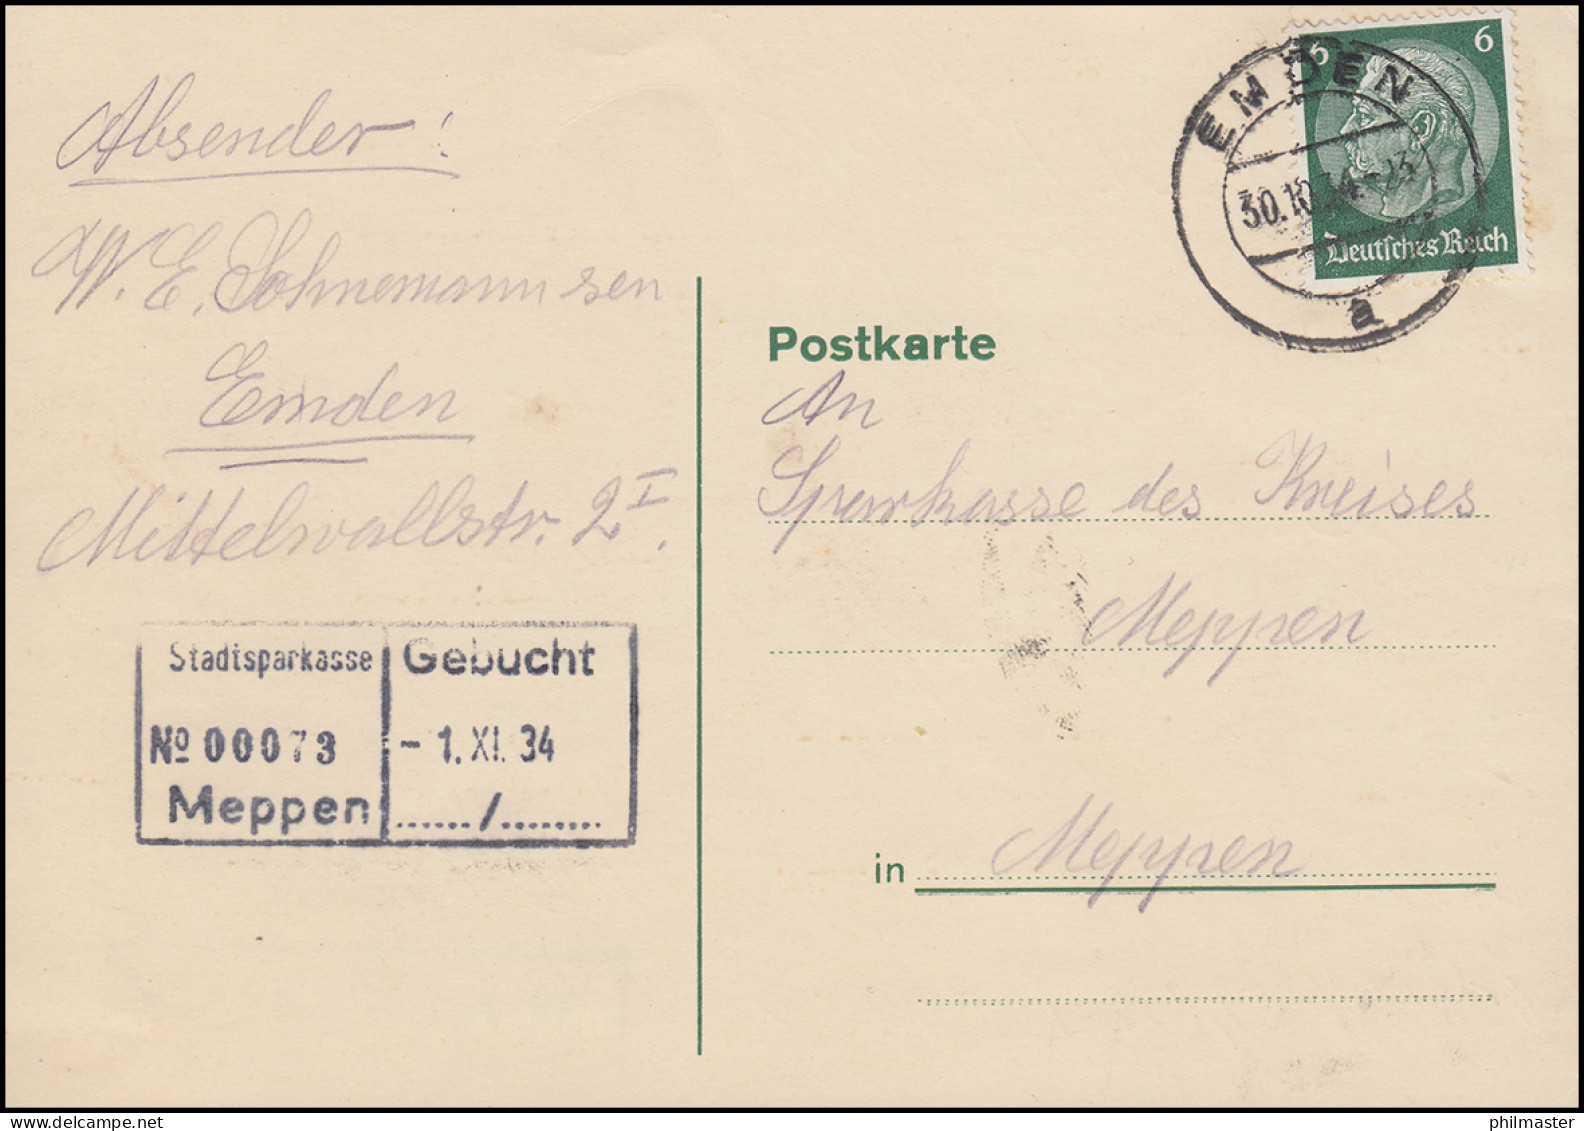 Absender:
W. E. Sohnemann sen
Emden
Mittelwallstr. 2 I.
Stadtsparkasse
No 00073
Meppen
Gebucht
- 1. XI. 34
....../........
6 6
Deutsches Reich
EMDEN
30.10.34.-23
a
Postkarte
An
Sparkasse des Kreises
Meppen
in Meppen
philmaster